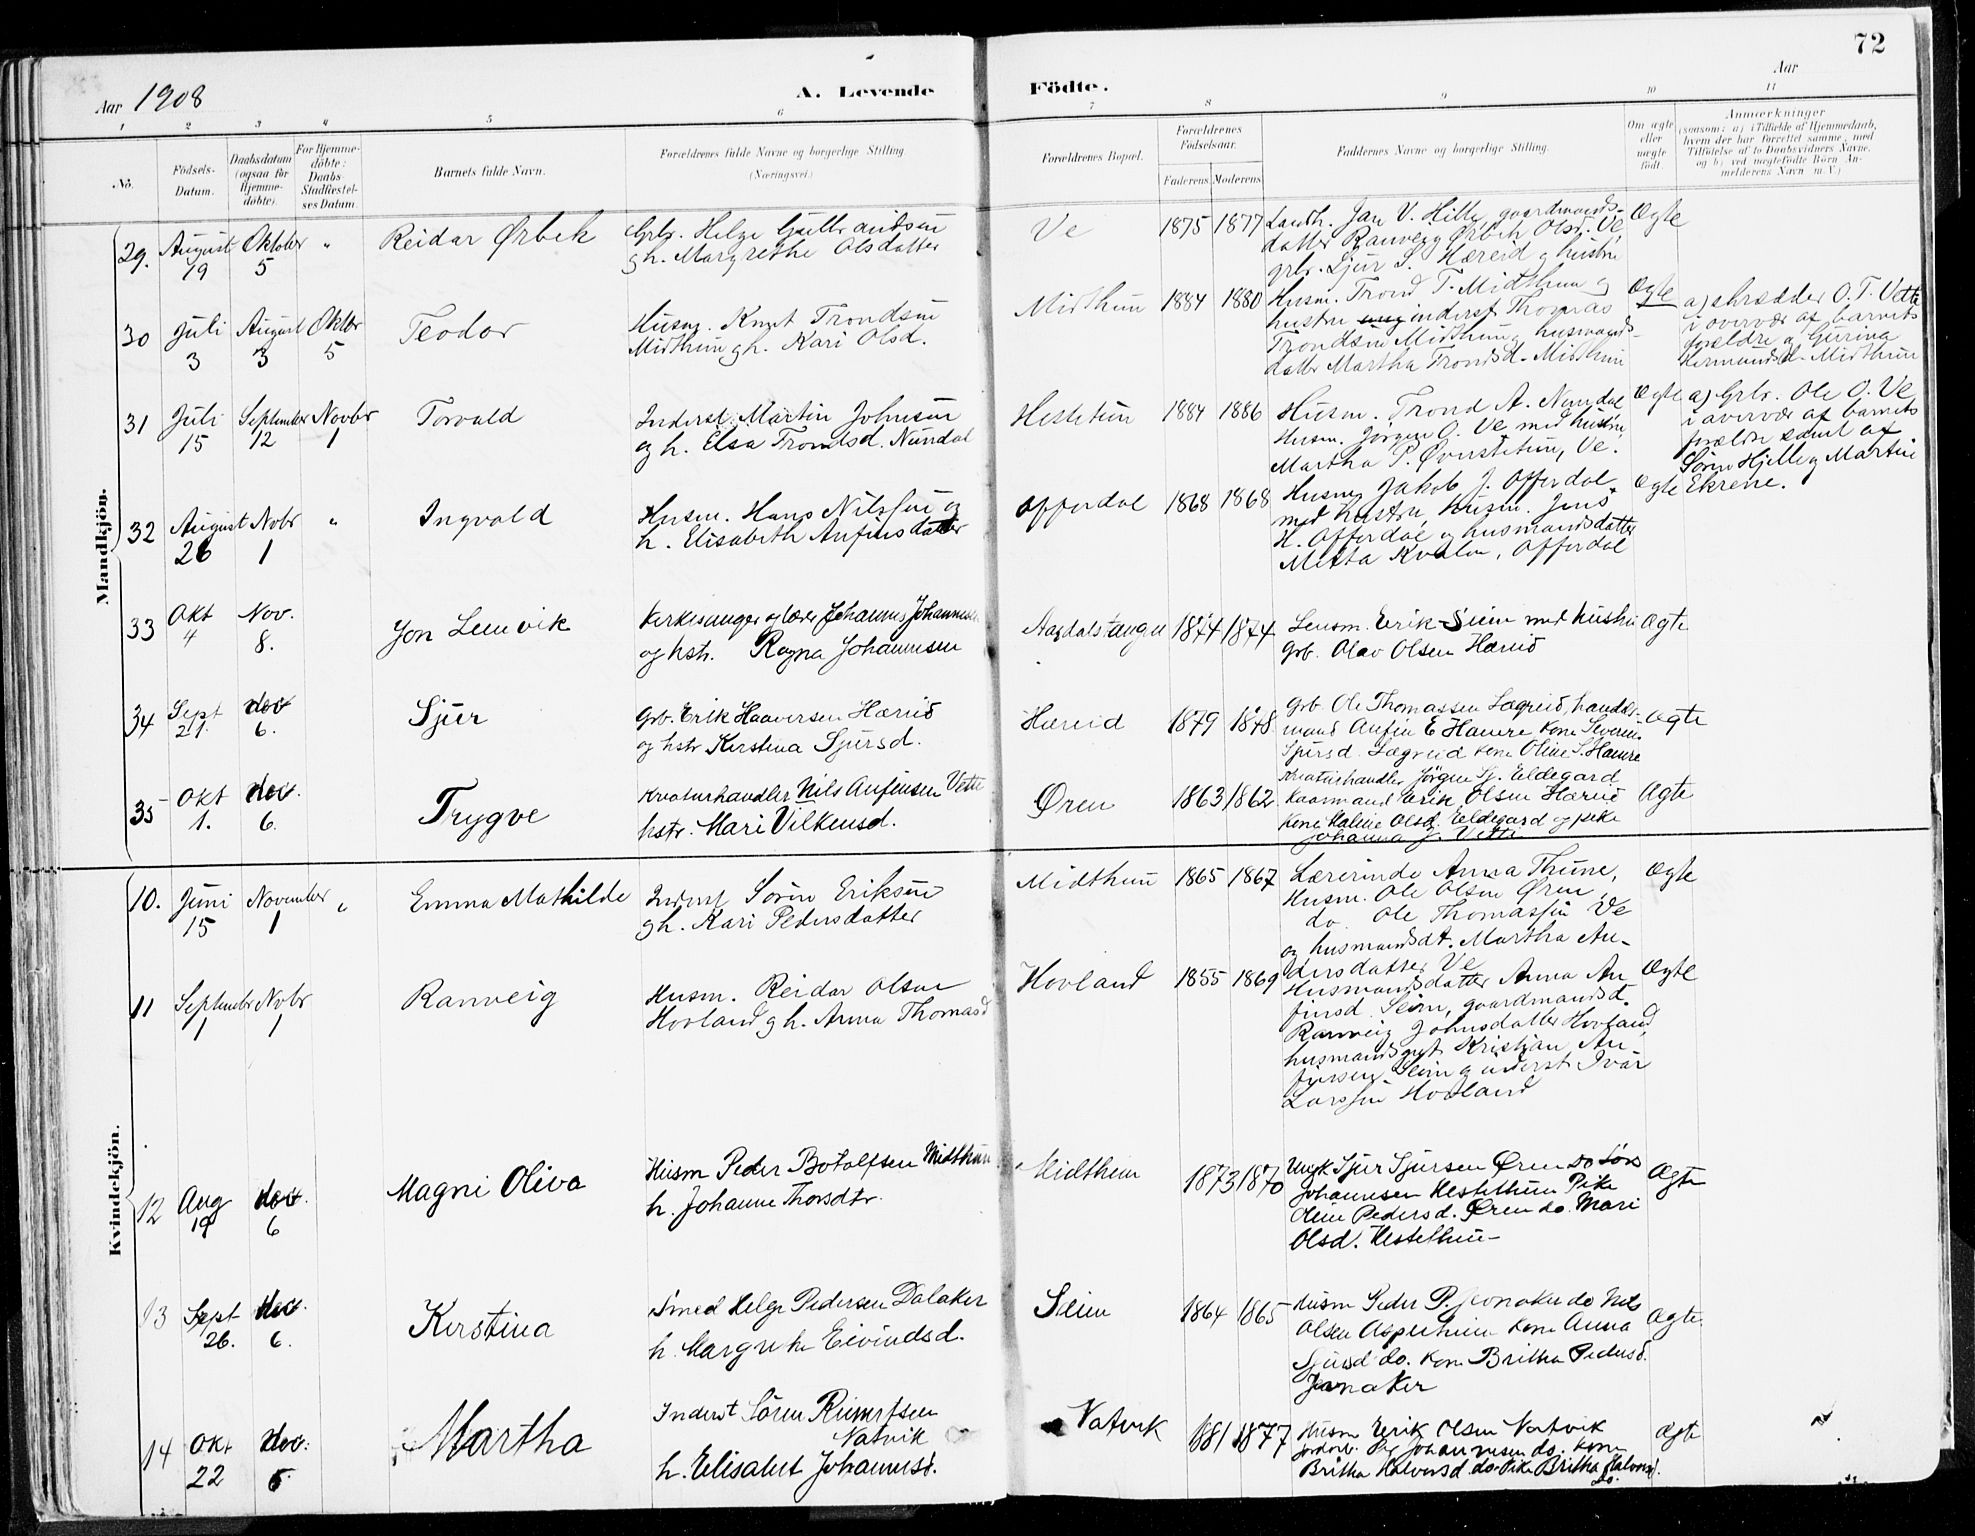 72
Aar 1908
A. Levende Födte.
Aar
1 2 3 4 5 6 7 8 9 10 11
No.
Födsels-Datum.
Daabsdatum (ogsaa for Hjemme-döbte).
For Hjemme-döbte: Daabs-Stadfæstel-ses Datum.
Barnets fulde Navn.
Forældrenes fulde Navne og borgerlige Stilling.
(Næringsvei.)
Forældrenes Bopæl.
Forældrenes Födselsaar.
Faderens. Moderens.
Faddernes Navne og borgerlige Stilling.
Om ægte eller uægte födt.
Anmærkninger
(saasom: a) i Tilfælde af Hjemmedaab,
hvem der har forrettet samme, med
Tilföielse af to Daabsvidners Navne,
og b) ved uægtefödte Börn An-
melderens Navn m.V.)
Mandkjön.
29. August 19 Oktober 5 " Reidar Ørbek
Grbr. Helge Gulbrandsen
g h. Margrethe Olsdatter
Ve 1875 1877
Landh. Jan V. Hille, gaardmands-
datter Ranveig Ørbek Olsd. Ve,
grbr. Sjur S. Hæreid g hustru
Ægte
30 Juli 3 August 3 Oktbr 5 Teodor
Husm. Knut Trondsen
Midthun g h. Kari Olsd.
Midthun 1884 1880
Husm. Trond T. Midthun g
hustru inderst Thomas
Trondsen Midthun g husmands-
datter Martha Trondsd. Midthun
Ægte
a) skrædder O. T. Vette
i overvær af barnets
forældre g Gurina
Hermundsd. Midthun
31 Juli 15 September 12 Novbr 1 Torvald
Inderst Martin Johnsen
og h. Elsa Trondsd. Nundal
Hestetun 1884 1886
Husm. Trond A. Nundal
Husm. Jörgen O. Ve med hustru,
Martha P. Øvrstetun, Ve.
Ægte
a) Grbr. Ole O. Ve
i overvær af barnets
forældre samt af
Sören Hjelle g Martin
Ekrene.
32 August 26 Nobr 1 " Ingvald
Husm. Hans Nilssen og
h. Elisabeth Anfinsdatter
Offerdal 1868 1868
Husm. Jakob J. Offerdal
med hustru, husm. Jens
H. Offerdal, g husmandsdatter
Metta Kvalen, Offerdal
Ægte
33 Okt 4 Nov. 8. Jon Leirvik
Kirkesanger og lærer Johannes Johannesen
og hstr. Ragna Johannesen
Aardalstangen 1874 1874
Lensm. Erik Seim med hustru
Grb. Olav Olsen Hæreid
Ægte
34 Sept 21. dec 6. Sjur
Grb. Erik Haaversen Hæreid
og hstr Kirstina Sjursd.
Hæreid 1879 1878
Grb Ole Thomassen Lægreid, handels-
mand Anfin E Hamre Kone Severin.
Sjursd. Lægreid kone Oline S. Hamre
Ægte
35 Okt 1. dec. 6. Trygve
Kreaturhandler Nils Anfinsen Vetti
hstr. Mari Vilkensd.
Øren 1863 1862
Kreaturhandler Jörgen Sj. Eldegard
Kaarmand Erik Olsen Hæreid
Kone Malene Olsd. Eldegard og pike
Johanna J. Vetti
Ægte
Kvindekjön.
10. Juni 15 November 1 " Emma Mathilde
Inderst Sören Eriksen
g h. Kari Pedersdatter
Midthun 1865 1867
Lærerinde Anna Thune,
Husm. Ole Olsen Øren,
do. Ole Thomassen Ve
og husmandsdt. Martha An-
dersdatter Ve
Ægte
11 September 1 Nobr 1 Ranveig
Husm. Reidar Olsen
Hovland g h. Anna Thomasd
Hovland 1855 1869
Husmandsdatter Anna An
finsd. Seim, gaardmandsd.
Ranveig Johnsdatter Hovland,
husmandsgut Kristian An-
finsen Seim g inderst Ivar
Larssen Hovland
Ægte
12 Aug 19 dec. 6 Magni Oliva
Husm Peder Botolfsen Midthun
h. Johanne Thorsdtr.
Midthun 1873 1870
Ungk Sjur Sjursen Øren do Sörs
Johannesen Hestethun Pike
Oline Pedersd. Øren do. Mari
Olsd. Hestethun
Ægte
13 Sept 26. dec. 6. Kirstina
Smed Helge Pedersen Dalaker
h. Margrethe Eivindsd.
Seim 1864 1865
Husm Peder P. Jevnaker do Nils
Olsen Asperheim Kone Anna
Sjursd do. Kone Britha Pedersd.
Jevnaker
Ægte.
14 Okt 22 dec: 6. Martha
Inderst Sören Reinertsen
Natvik
h. Elisabet Johannesd.
Natvik 1881 1877
Husm Erik Olsen Natvik
Johannesen do. Kone
Britha Halvorsd do. Pike Britha Halvorsd.
do.
Ægte